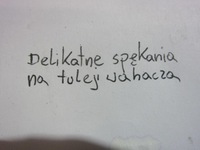 Delikatne spękania
na tuleji wahacza